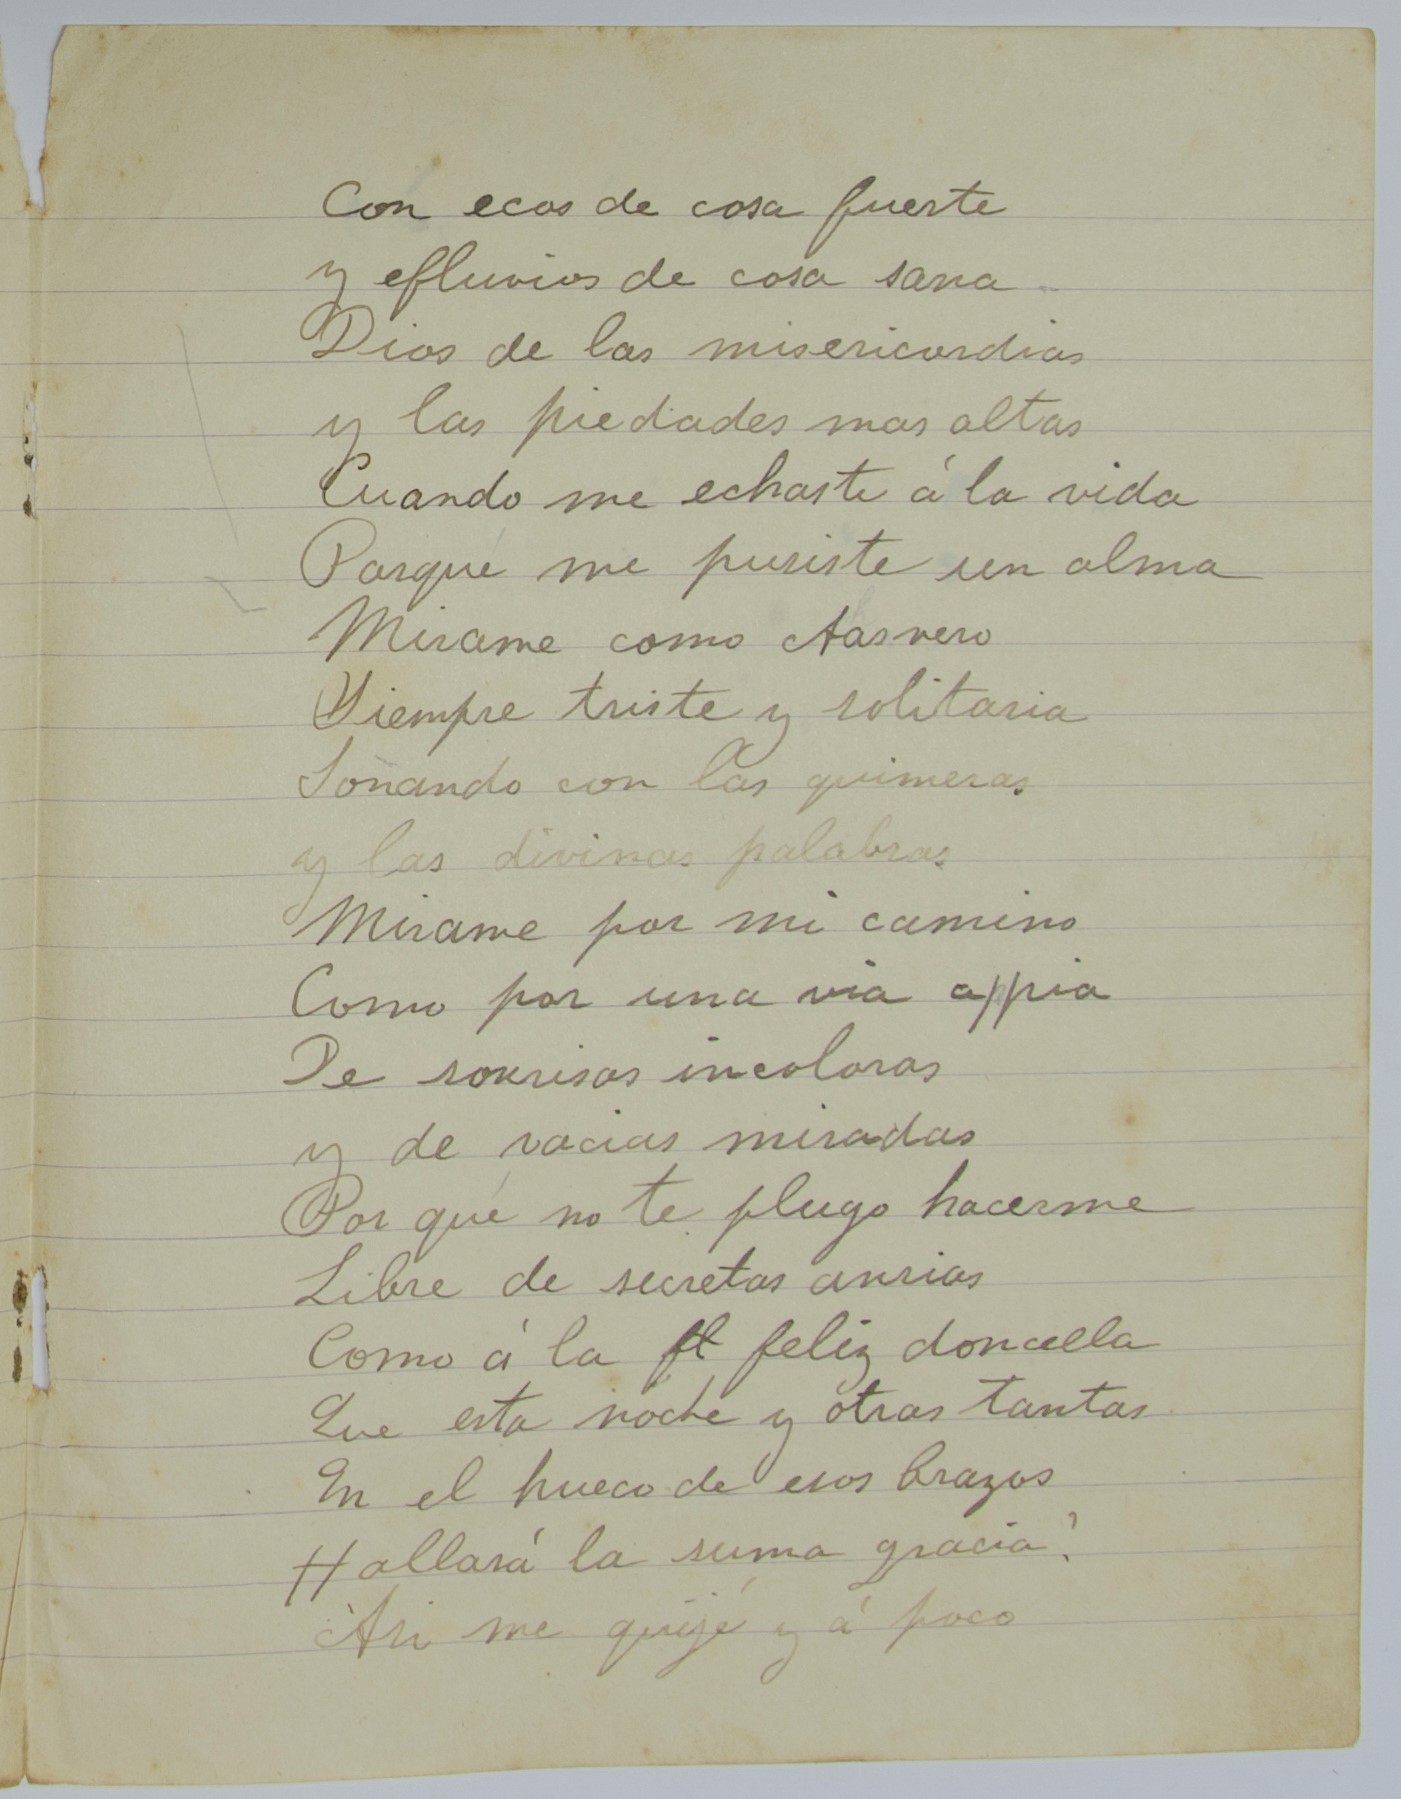 Con ecos de cosa fuerte
y efluvios de cosa sana
Dios de las misericordias
y las piedades mas altas
Cuando me echaste á la vida
Porqué me pusiste un alma
Mirame como Aasvero
Siempre triste y solitaria
Soñando con las quimeras
y las divinas palabras
Mirame por mi camino
Como por una via appia
De sonrisas incoloras
y de vacias miradas
Por qué no te plugo hacerme
Libre de secretas ansias
Como á la feliz doncella
Que esta noche y otras tantas
En el hueco de esos brazos
Hallará la suma gracia!
Asi me quijé y á poco